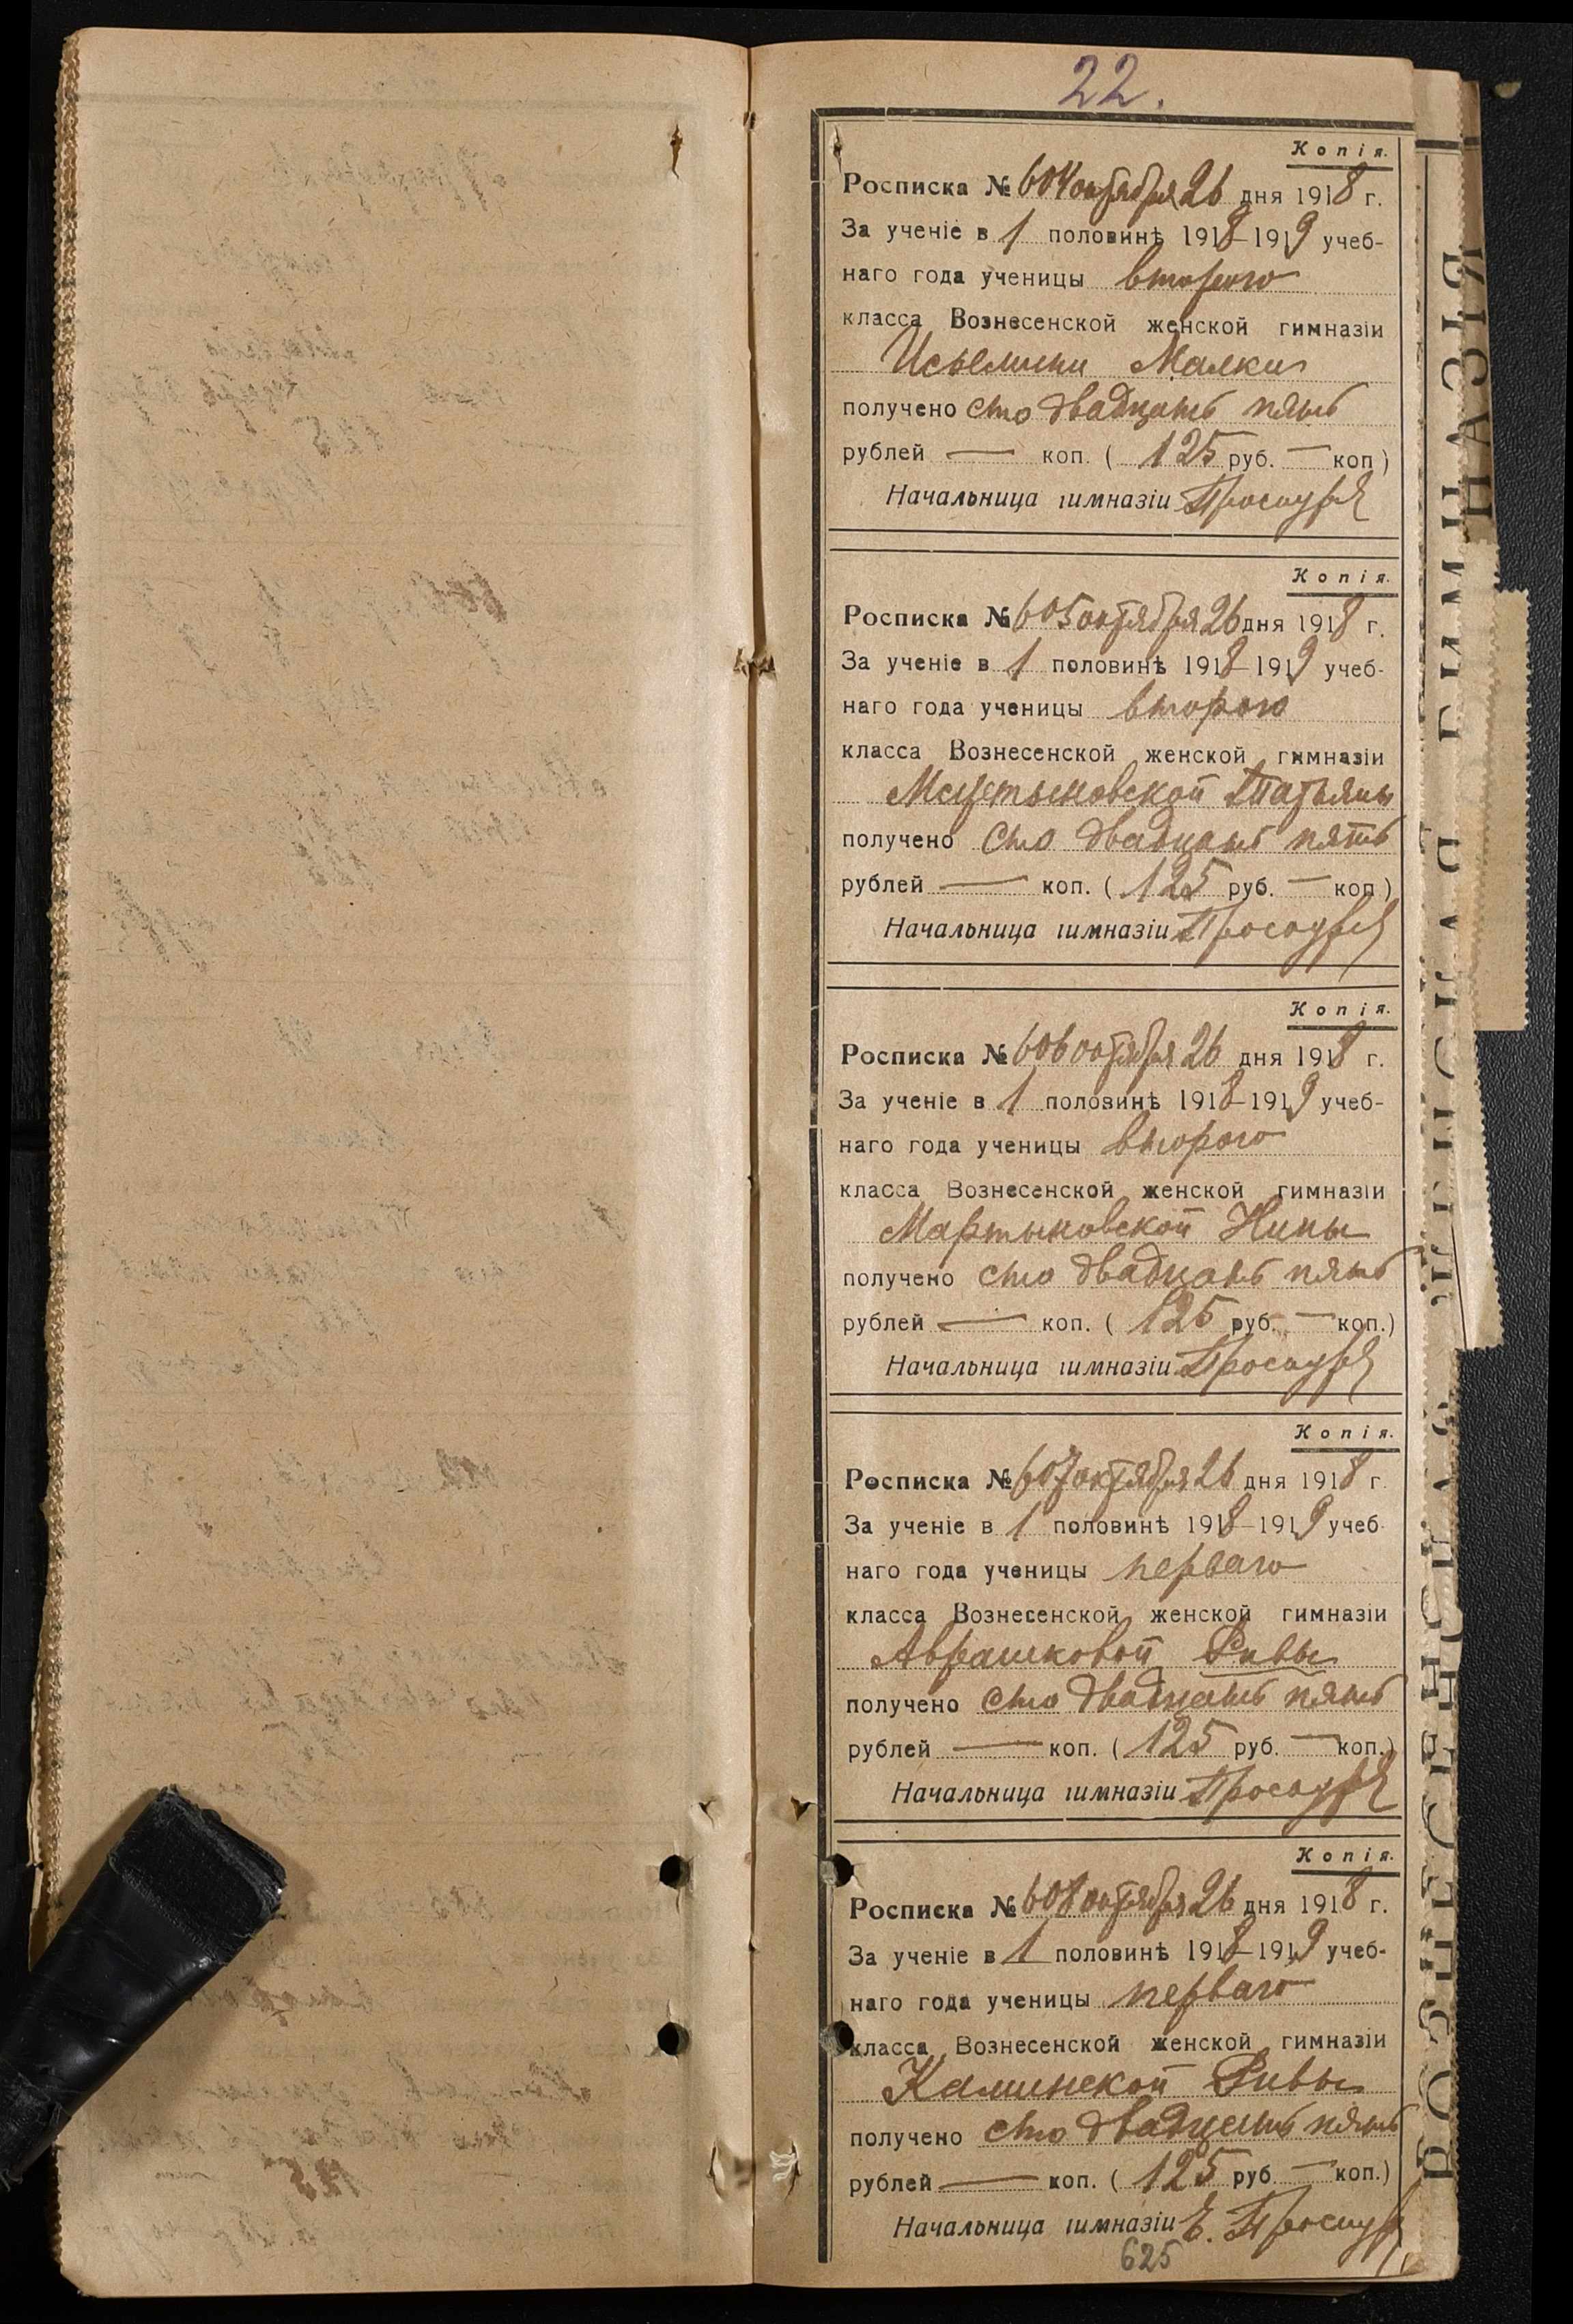 22.
Копія.
Росписка № 604 октября 26 дня 1918 г.
За ученіе в 1 половинѣ 1918–1919 учеб-
наго года ученицы второго
класса Вознесенской женской гимназіи
Малки
получено сто двадцать пять
рублей — коп. ( 125 руб. — коп)
Начальница гимназіи
Копія.
Росписка № 605 октября 26 дня 1918 г.
За ученіе в 1 половинѣ 1918–1919 учеб-
наго года ученицы второго
класса Вознесенской женской гимназіи
Татьяны
получено сто двадцать пять
рублей — коп. ( 125 руб. — коп)
Начальница гимназіи
Копія.
Росписка № 606 октября 26 дня 1918 г.
За ученіе в 1 половинѣ 1918–1919 учеб-
наго года ученицы второго
класса Вознесенской женской гимназіи
Мартыновской Нины
получено сто двадцать пять
рублей — коп. ( 125 руб. — коп.)
Начальница гимназіи
Копія.
Росписка № 607 октября 26 дня 1918 г.
За ученіе в 1 половинѣ 1918–1919 учеб-
наго года ученицы перваго
класса Вознесенской женской гимназіи
Аврашковой Ривы
получено сто двадцать пять
рублей — коп. ( 125 руб. — коп.)
Начальница гимназіи
Копія.
Росписка № 608 октября 26 дня 1918 г.
За ученіе в 1 половинѣ 1918–1919 учеб-
наго года ученицы перваго
класса Вознесенской женской гимназіи
Каминской Ривы
получено сто двадцать пять
рублей — коп. ( 125 руб. — коп.)
Начальница гимназіи Е.
625